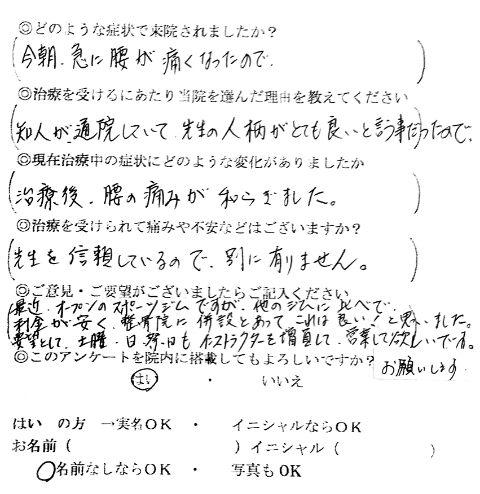 ◎どのような症状で来院されましたか？
(今朝、急に腰が痛くなったので。)
◎治療を受けるにあたり当院を選んだ理由を教えてください
(知人が通院していて、先生の人柄がとても良いと言う事だったので。)
◎現在治療中の症状にどのような変化がありましたか
(治療後、腰の痛みが和らぎました。)
◎治療を受けられて痛みや不安などはございますか？
(先生を信頼しているので、別に有りません。)
◎ご意見・ご要望がございましたらご記入ください
最近、オープンのスポーツジムですが、他のジムに比べて、
料金が安く、整骨院に併設とあって、これは良い！と思いました。
要望として、土曜、日、祭日もインストラクターを増員して、営業して欲しいです。
お願いします。
◎このアンケートを院内に搭載してもよろしいですか？
はい ・ いいえ
はい の方 →実名OK ・ イニシャルならOK
お名前 ( ) イニシャル ( )
名前なしならOK ・ 写真もOK